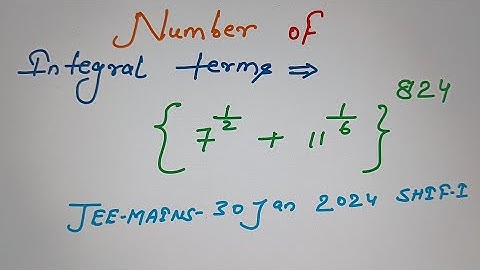 Number of
Integral terms ⇒
{7^{1/2} + 11^{1/6}}^{824}
JEE-MAINS-30 Jan 2024 SHIF-I